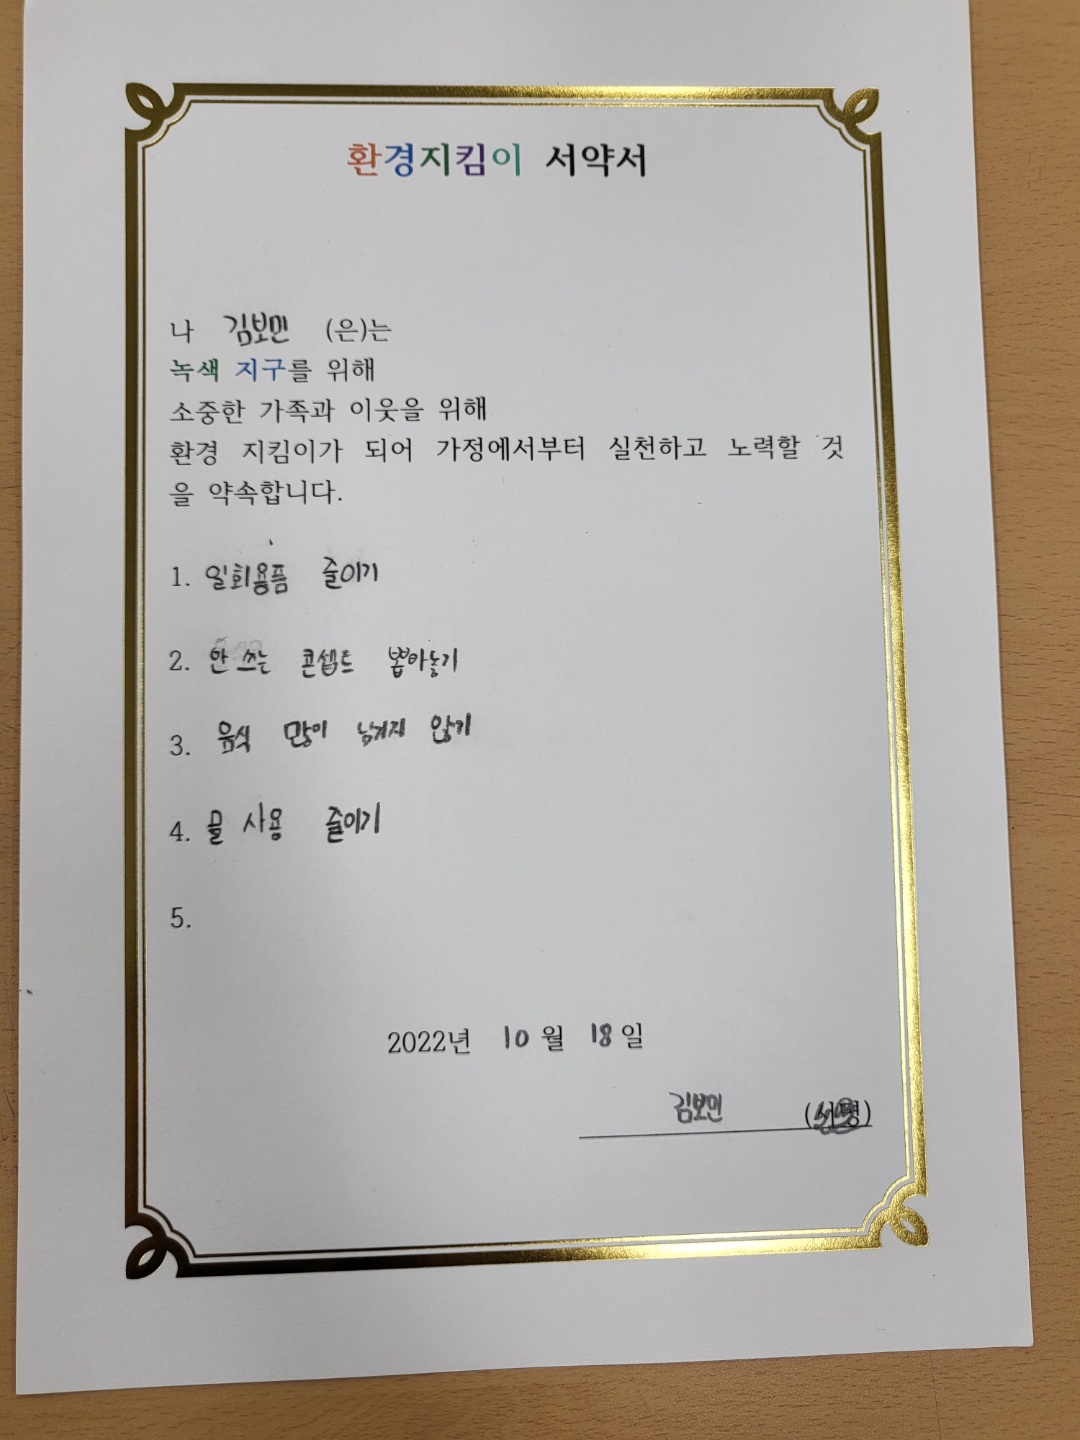 환경지킴이 서약서
나 김보민 (은)는
녹색 지구를 위해
소중한 가족과 이웃을 위해
환경 지킴이가 되어 가정에서부터 실천하고 노력할 것
을 약속합니다.
1. 일회용품 줄이기
2. 안 쓰는 콘셉트 뽑아놓기
3. 음식 많이 남겨지 않기
4. 물 사용 줄이기
5.
2022년 10월 18일
김보민 (서명)